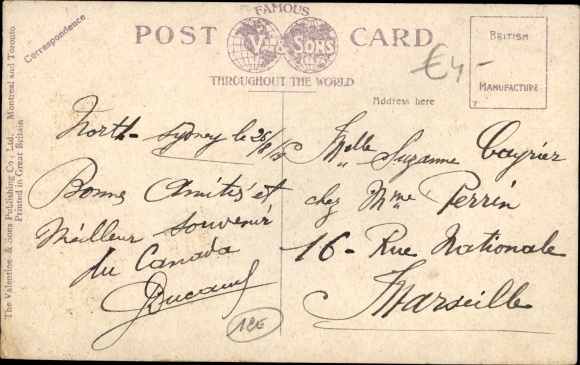 FAMOUS
POST CARD
V. & SONS
THROUGHOUT THE WORLD
BRITISH
MANUFACTURE
7
€4-
Correspondence
Address here
The Valentine & Sons Publishing Co., Ltd. Montreal and Toronto
Printed in Great Britain
North-Sydney le 26/8/
Bonnes Amitiés et
Meilleur souvenir
du Canada
Melle Suzanne Cayrier
chez Mme Perrin
16 - Rue Nationale
Marseille